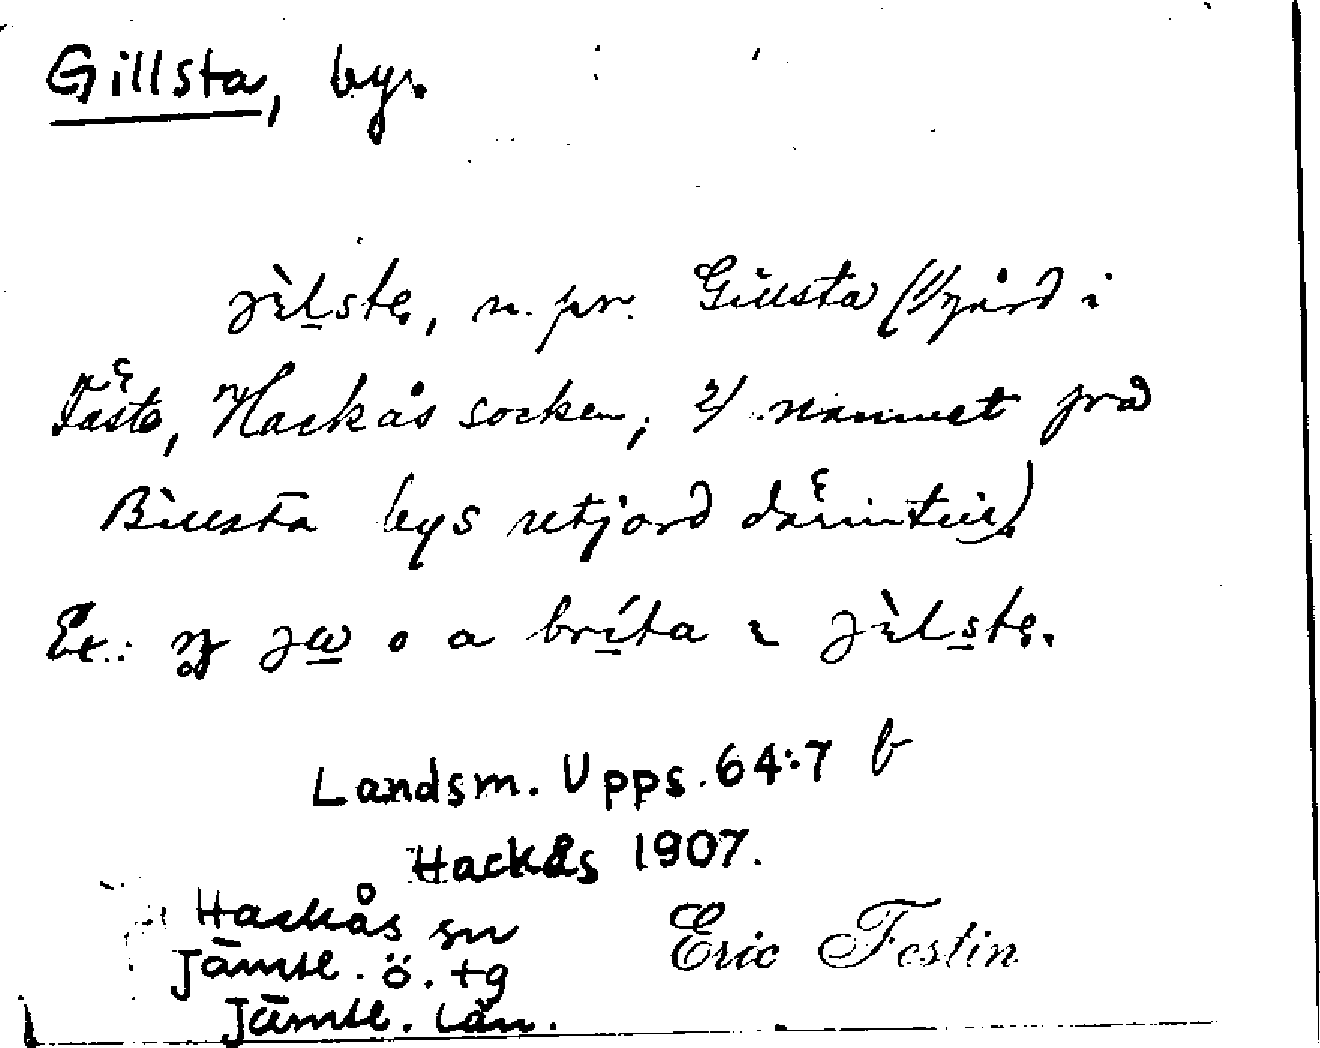 Gillsta, by.
jìlstę, n. pr. Gillsta (1/ gård i
Fäste, Hackås socken, 2/ namnet på
Billsta bys utjord därintill)
Ex.: a bríta jìlstę.
Landsm. Upps. 64:7 b
Hackås 1907.
Hackås sn
Jämtl. ö. tg
Jämtl. län.
Eric Festin